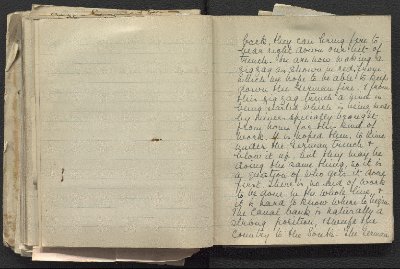 back, they can bring fire to
bear right down our bit of
trench. We are now making a
zigzag as shown in red, from
which we hope to be able to keep
down the German fire. & from
this zigzag trench a mine is
being started which is being made
by miners specially brought
from home for this kind of
work. It is hoped then, to mine
under the German trench &
blow it up, but they may be
doing the same thing, so it is
a question of who gets it done
first. There is no end of work
to be done in the whole line, &
it is hard to know where to begin.
The canal bank is naturally a
strong position, & the
country to the South. The German